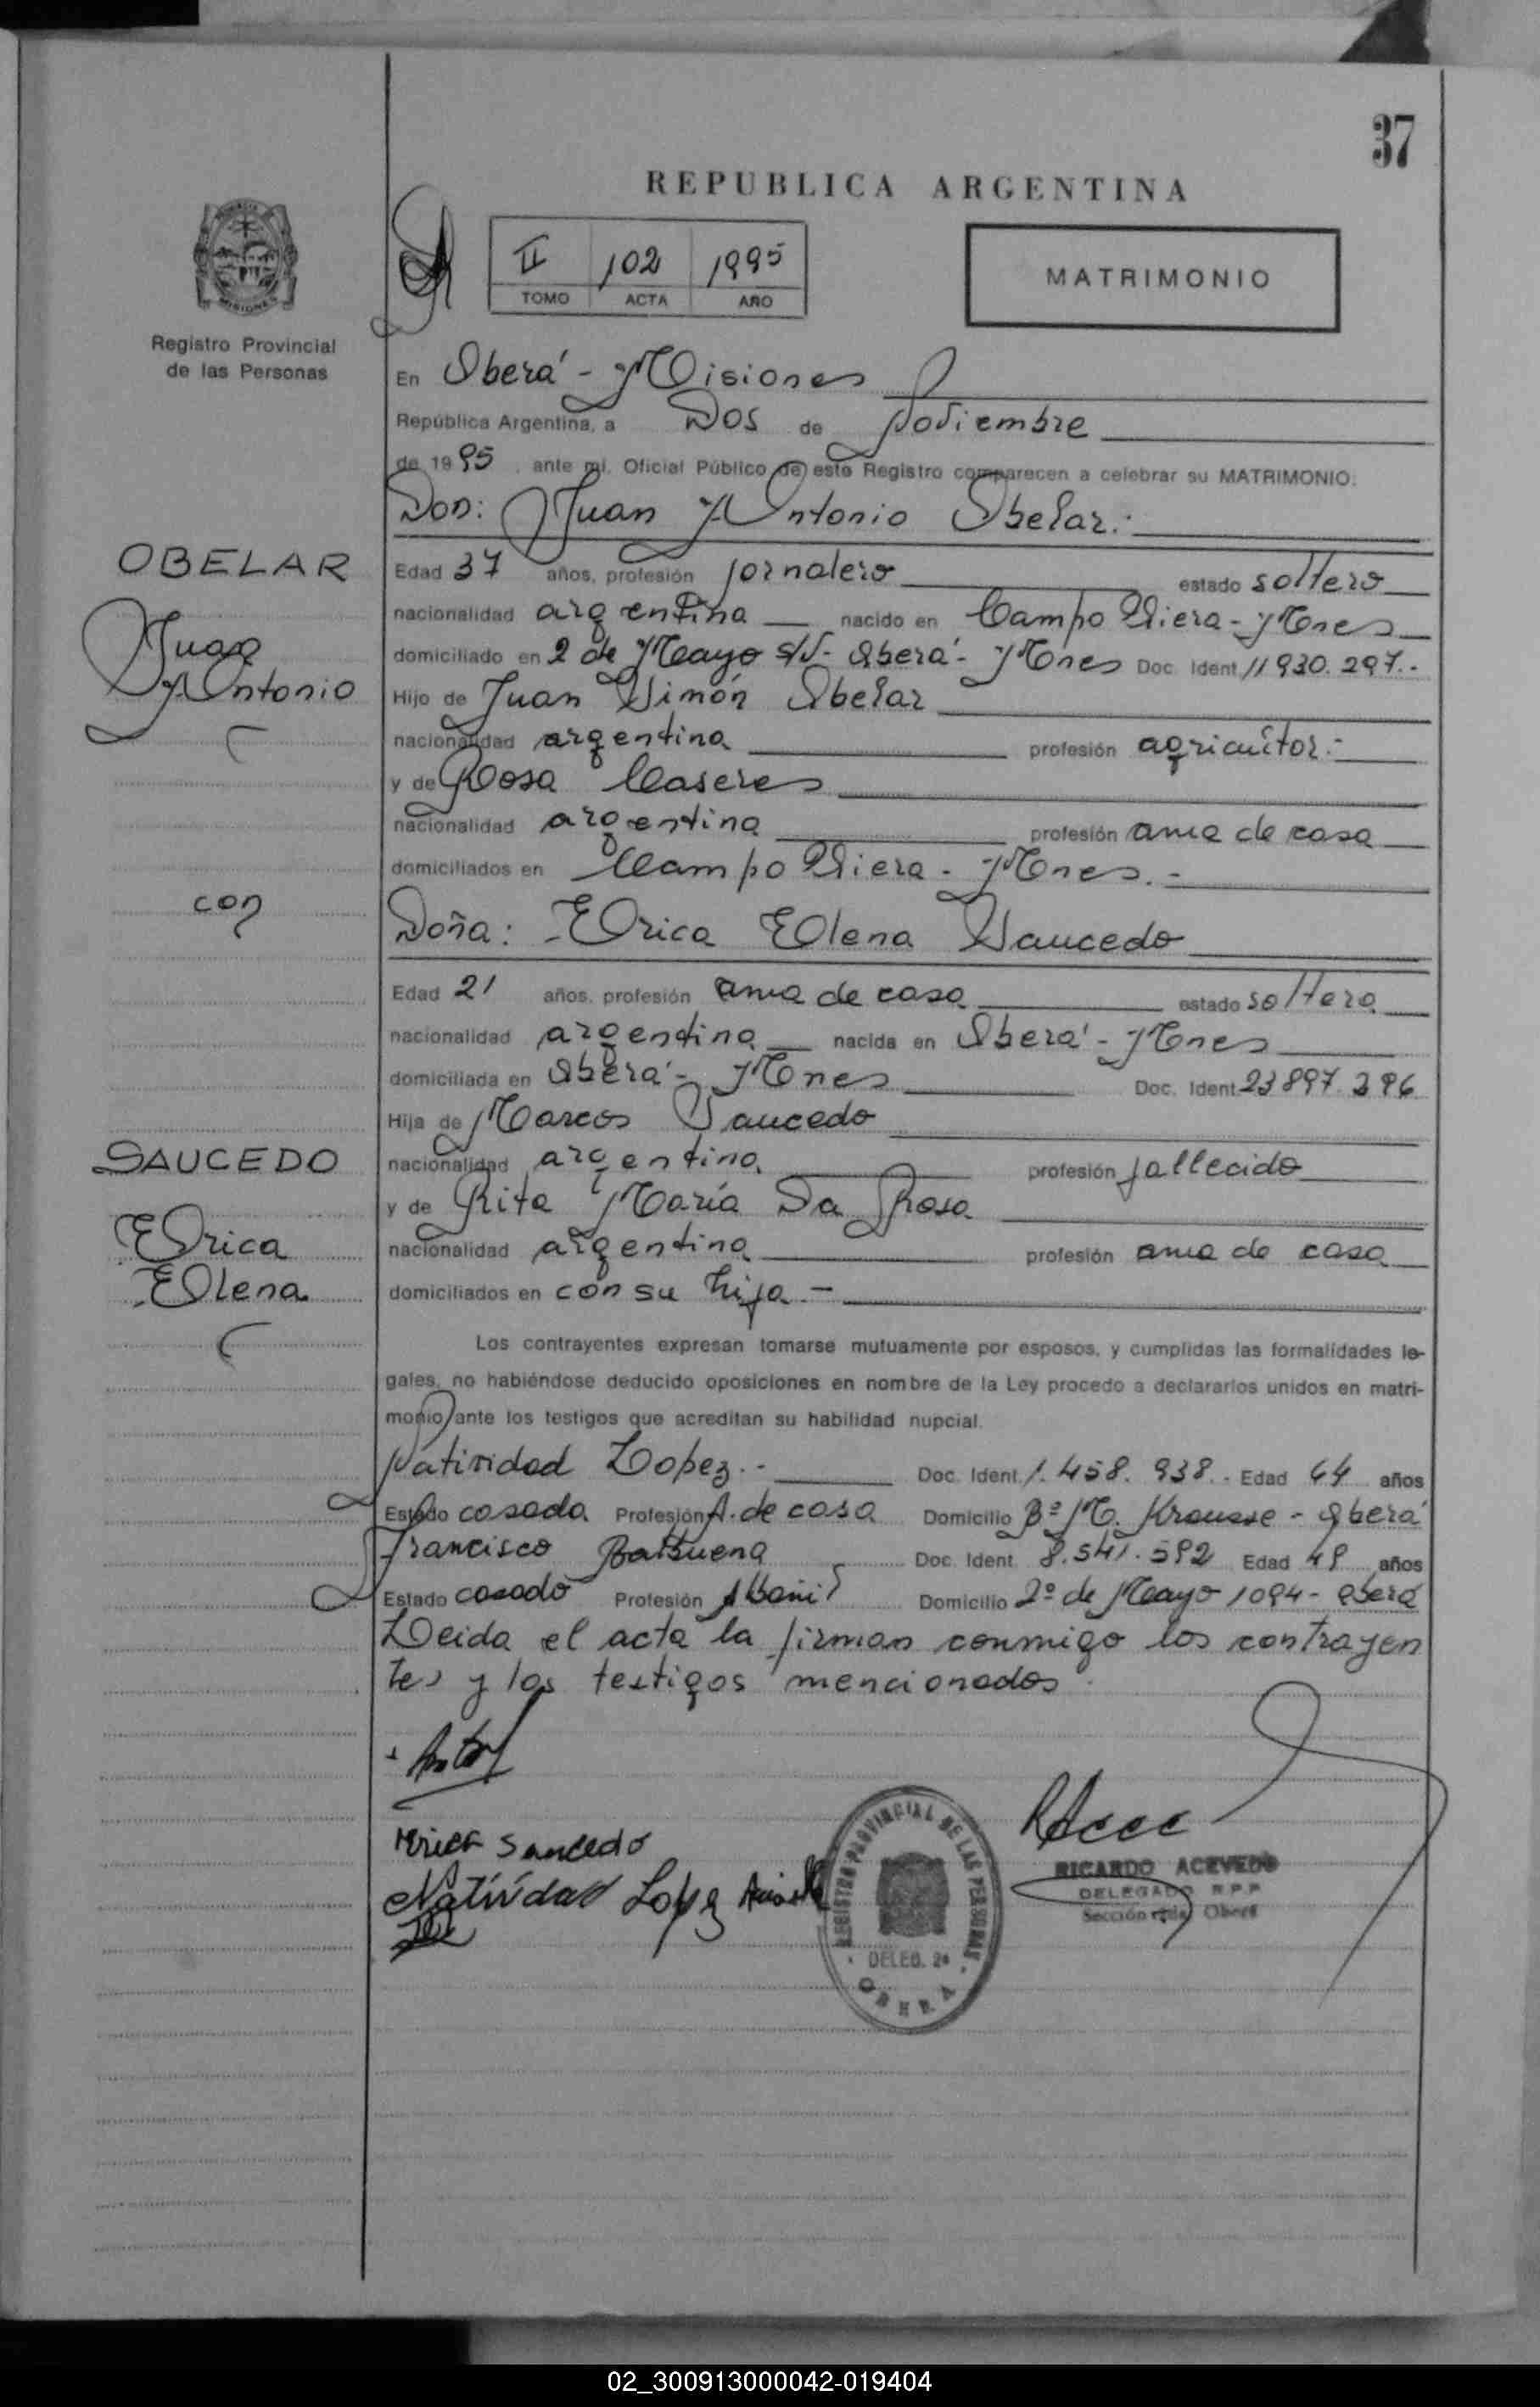 37
REPUBLICA ARGENTINA
II 102 1995
TOMO ACTA AÑO
MATRIMONIO
Registro Provincial
de las Personas
En Oberá - Misiones
República Argentina, a Dos de Noviembre
de 1995, ante mi, Oficial Público de este Registro comparecen a celebrar su MATRIMONIO:
Don: Juan Antonio Obelar.-
OBELAR
Juan
Antonio
Edad 37 años, profesión jornalero estado soltero
nacionalidad argentina nacido en Campo Viera - Mnes
domiciliado en 2 de Mayo S/N - Oberá - Mnes Doc. Ident. 11930.297.-
Hijo de Juan Simón Obelar
nacionalidad argentina profesión agricultor.-
y de Rosa Caseres
nacionalidad argentina profesión ama de casa
domiciliados en Campo Viera - Mnes.-
con
Doña: Erica Elena Saucedo
Edad 21 años, profesión ama de casa estado soltera
nacionalidad argentina nacida en Oberá - Mnes
domiciliada en Oberá - Mnes Doc. Ident. 23897.396
Hija de Marcos Saucedo
SAUCEDO
Erica
Elena
nacionalidad argentina profesión fallecido
y de Rita María Da Rosa
nacionalidad argentina profesión ama de casa
domiciliados en con su hija -
Los contrayentes expresan tomarse mutuamente por esposos, y cumplidas las formalidades le-
gales, no habiéndose deducido oposiciones en nombre de la Ley procedo a declararlos unidos en matri-
monio ante los testigos que acreditan su habilidad nupcial.
Natividad Lopez.- Doc. Ident. 1.458.938.- Edad 64 años
Estado casada Profesión A. de casa Domicilio Bº M. Krausse - Oberá
Francisco Balbuena Doc. Ident. 8.541.592 Edad 49 años
Estado casado Profesión Albañil Domicilio 2º de Mayo 1094 - Oberá
Leida el acta la firman conmigo los contrayen
tes y los testigos mencionados.
Erica Saucedo
Natividad Lopez
REGISTRO PROVINCIAL DE LAS PERSONAS
DELEG. 2ª
OBERA
RICARDO ACEVEDO
DELEGADO R.P.P
Sección Oberá
02_300913000042-019404